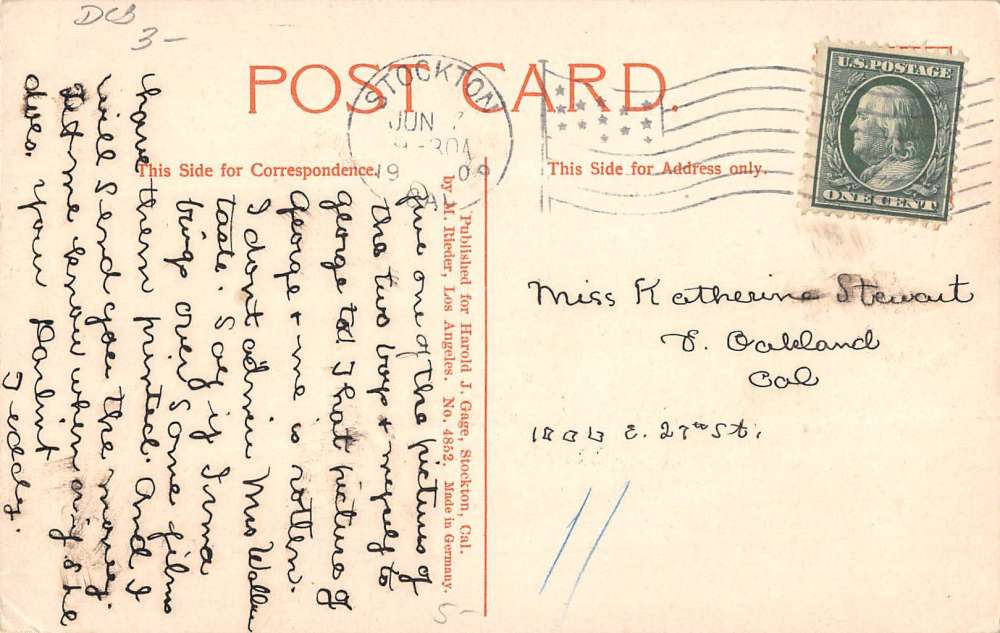 DCB
3-
POST CARD.
STOCKTON
JUN 7
1909
CAL
U.S. POSTAGE
ONE CENT
This Side for Correspondence.
This Side for Address only.
Published for Harold J. Gage, Stockton, Cal.
by M. Rieder, Los Angeles. No. 4852. Made in Germany.
Give one of the pictures of
the two boys & myself to
George to I hat pictures of
George & me is rotten.
I dont admire Mrs
taste. Say if Irma
brings over some films
have them printed. And I
will send you the money.
Let me know when or if she
does. your Darlint
Teddy.
Miss Katherine Stewart
E. Oakland
Cal
E. 27th St.
5-